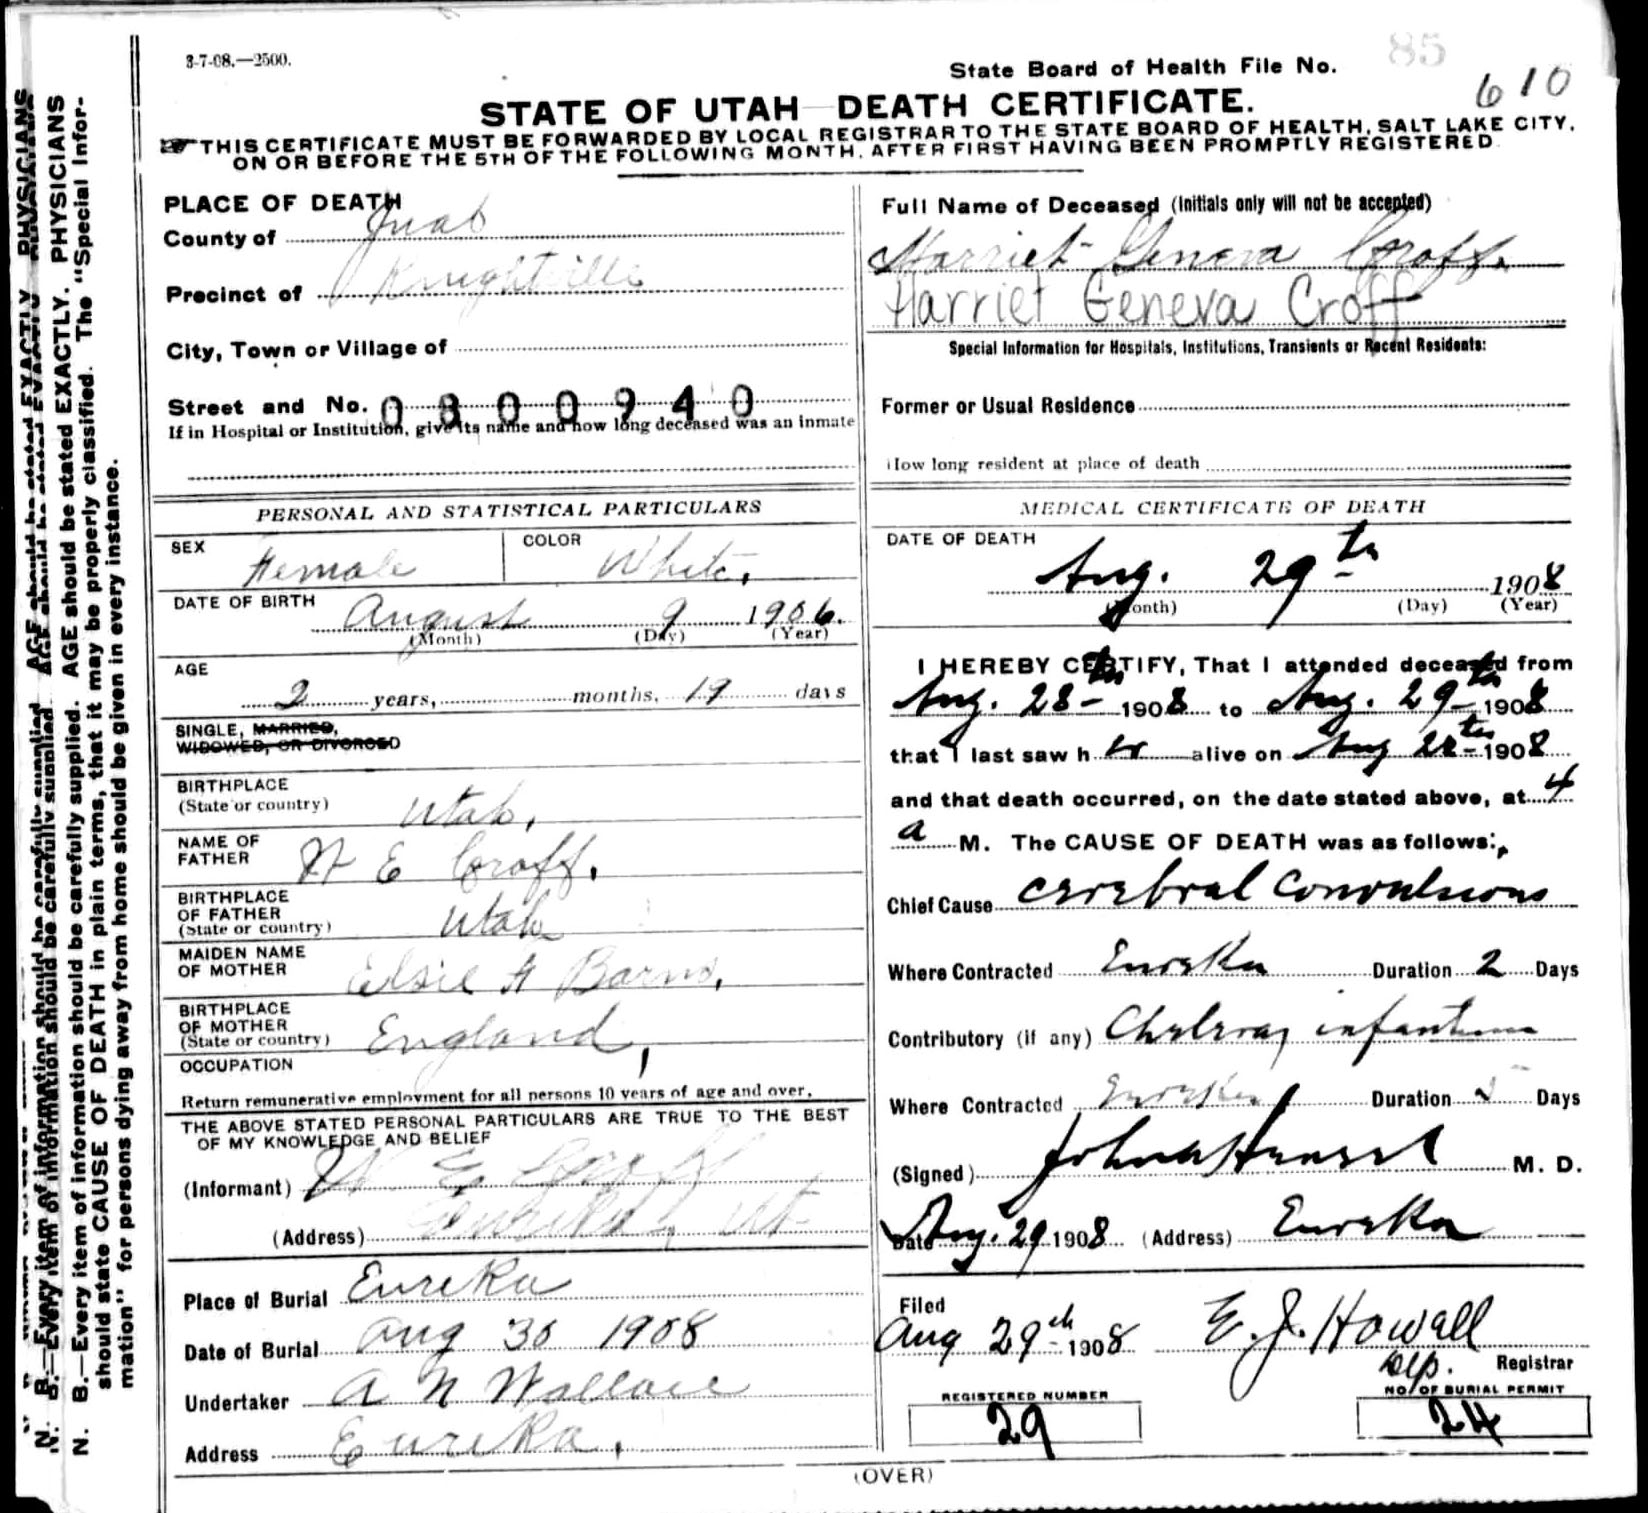 3-7-08.—2500.
85
State Board of Health File No.
610
STATE OF UTAH—DEATH CERTIFICATE.
THIS CERTIFICATE MUST BE FORWARDED BY LOCAL REGISTRAR TO THE STATE BOARD OF HEALTH, SALT LAKE CITY,
ON OR BEFORE THE 5TH OF THE FOLLOWING MONTH, AFTER FIRST HAVING BEEN PROMPTLY REGISTERED.
N. B.—Every item of information should be carefully supplied. AGE should be stated EXACTLY. PHYSICIANS
should state CAUSE OF DEATH in plain terms, that it may be properly classified. The "Special Infor-
mation" for persons dying away from home should be given in every instance.
PLACE OF DEATH
County of Juab
Precinct of Knightville
City, Town or Village of
Street and No. 0800940
If in Hospital or Institution, give its name and how long deceased was an inmate
Full Name of Deceased (Initials only will not be accepted)
Harriet Geneva Croff.
Harriet Geneva Croff
Special Information for Hospitals, Institutions, Transients or Recent Residents:
Former or Usual Residence
How long resident at place of death
PERSONAL AND STATISTICAL PARTICULARS
SEX Female COLOR White.
DATE OF BIRTH
August 9 1906.
(Month) (Day) (Year)
AGE
2 years, months, 19 days
SINGLE, MARRIED,
WIDOWED, OR DIVORCED
BIRTHPLACE
(State or country) Utah.
NAME OF
FATHER
E Croff.
BIRTHPLACE
OF FATHER
(State or country) Utah
MAIDEN NAME
OF MOTHER Elsie A Barns.
BIRTHPLACE
OF MOTHER
(State or country) England,
OCCUPATION
Return remunerative employment for all persons 10 years of age and over.
THE ABOVE STATED PERSONAL PARTICULARS ARE TRUE TO THE BEST
OF MY KNOWLEDGE AND BELIEF
(Informant) E Croff
(Address) Eureka, Ut
Place of Burial Eureka
Date of Burial Aug 30 1908
Undertaker A N Wallace
Address Eureka.
MEDICAL CERTIFICATE OF DEATH
DATE OF DEATH
Aug. 29th 1908
(Month) (Day) (Year)
I HEREBY CERTIFY, That I attended deceased from
Aug. 28th 1908 to Aug. 29th 1908
that I last saw her alive on Aug 28th 1908
and that death occurred, on the date stated above, at 4
a M. The CAUSE OF DEATH was as follows:
Chief Cause Cerebral Convulsions
Where Contracted Eureka Duration 2 Days
Contributory (if any) infantum
Where Contracted Eureka Duration 5 Days
(Signed) M. D.
Date Aug. 29 1908 (Address) Eureka
Filed
Aug 29th 1908 E. J. Howell
Dep. Registrar
REGISTERED NUMBER
29
NO. OF BURIAL PERMIT
24
(OVER)